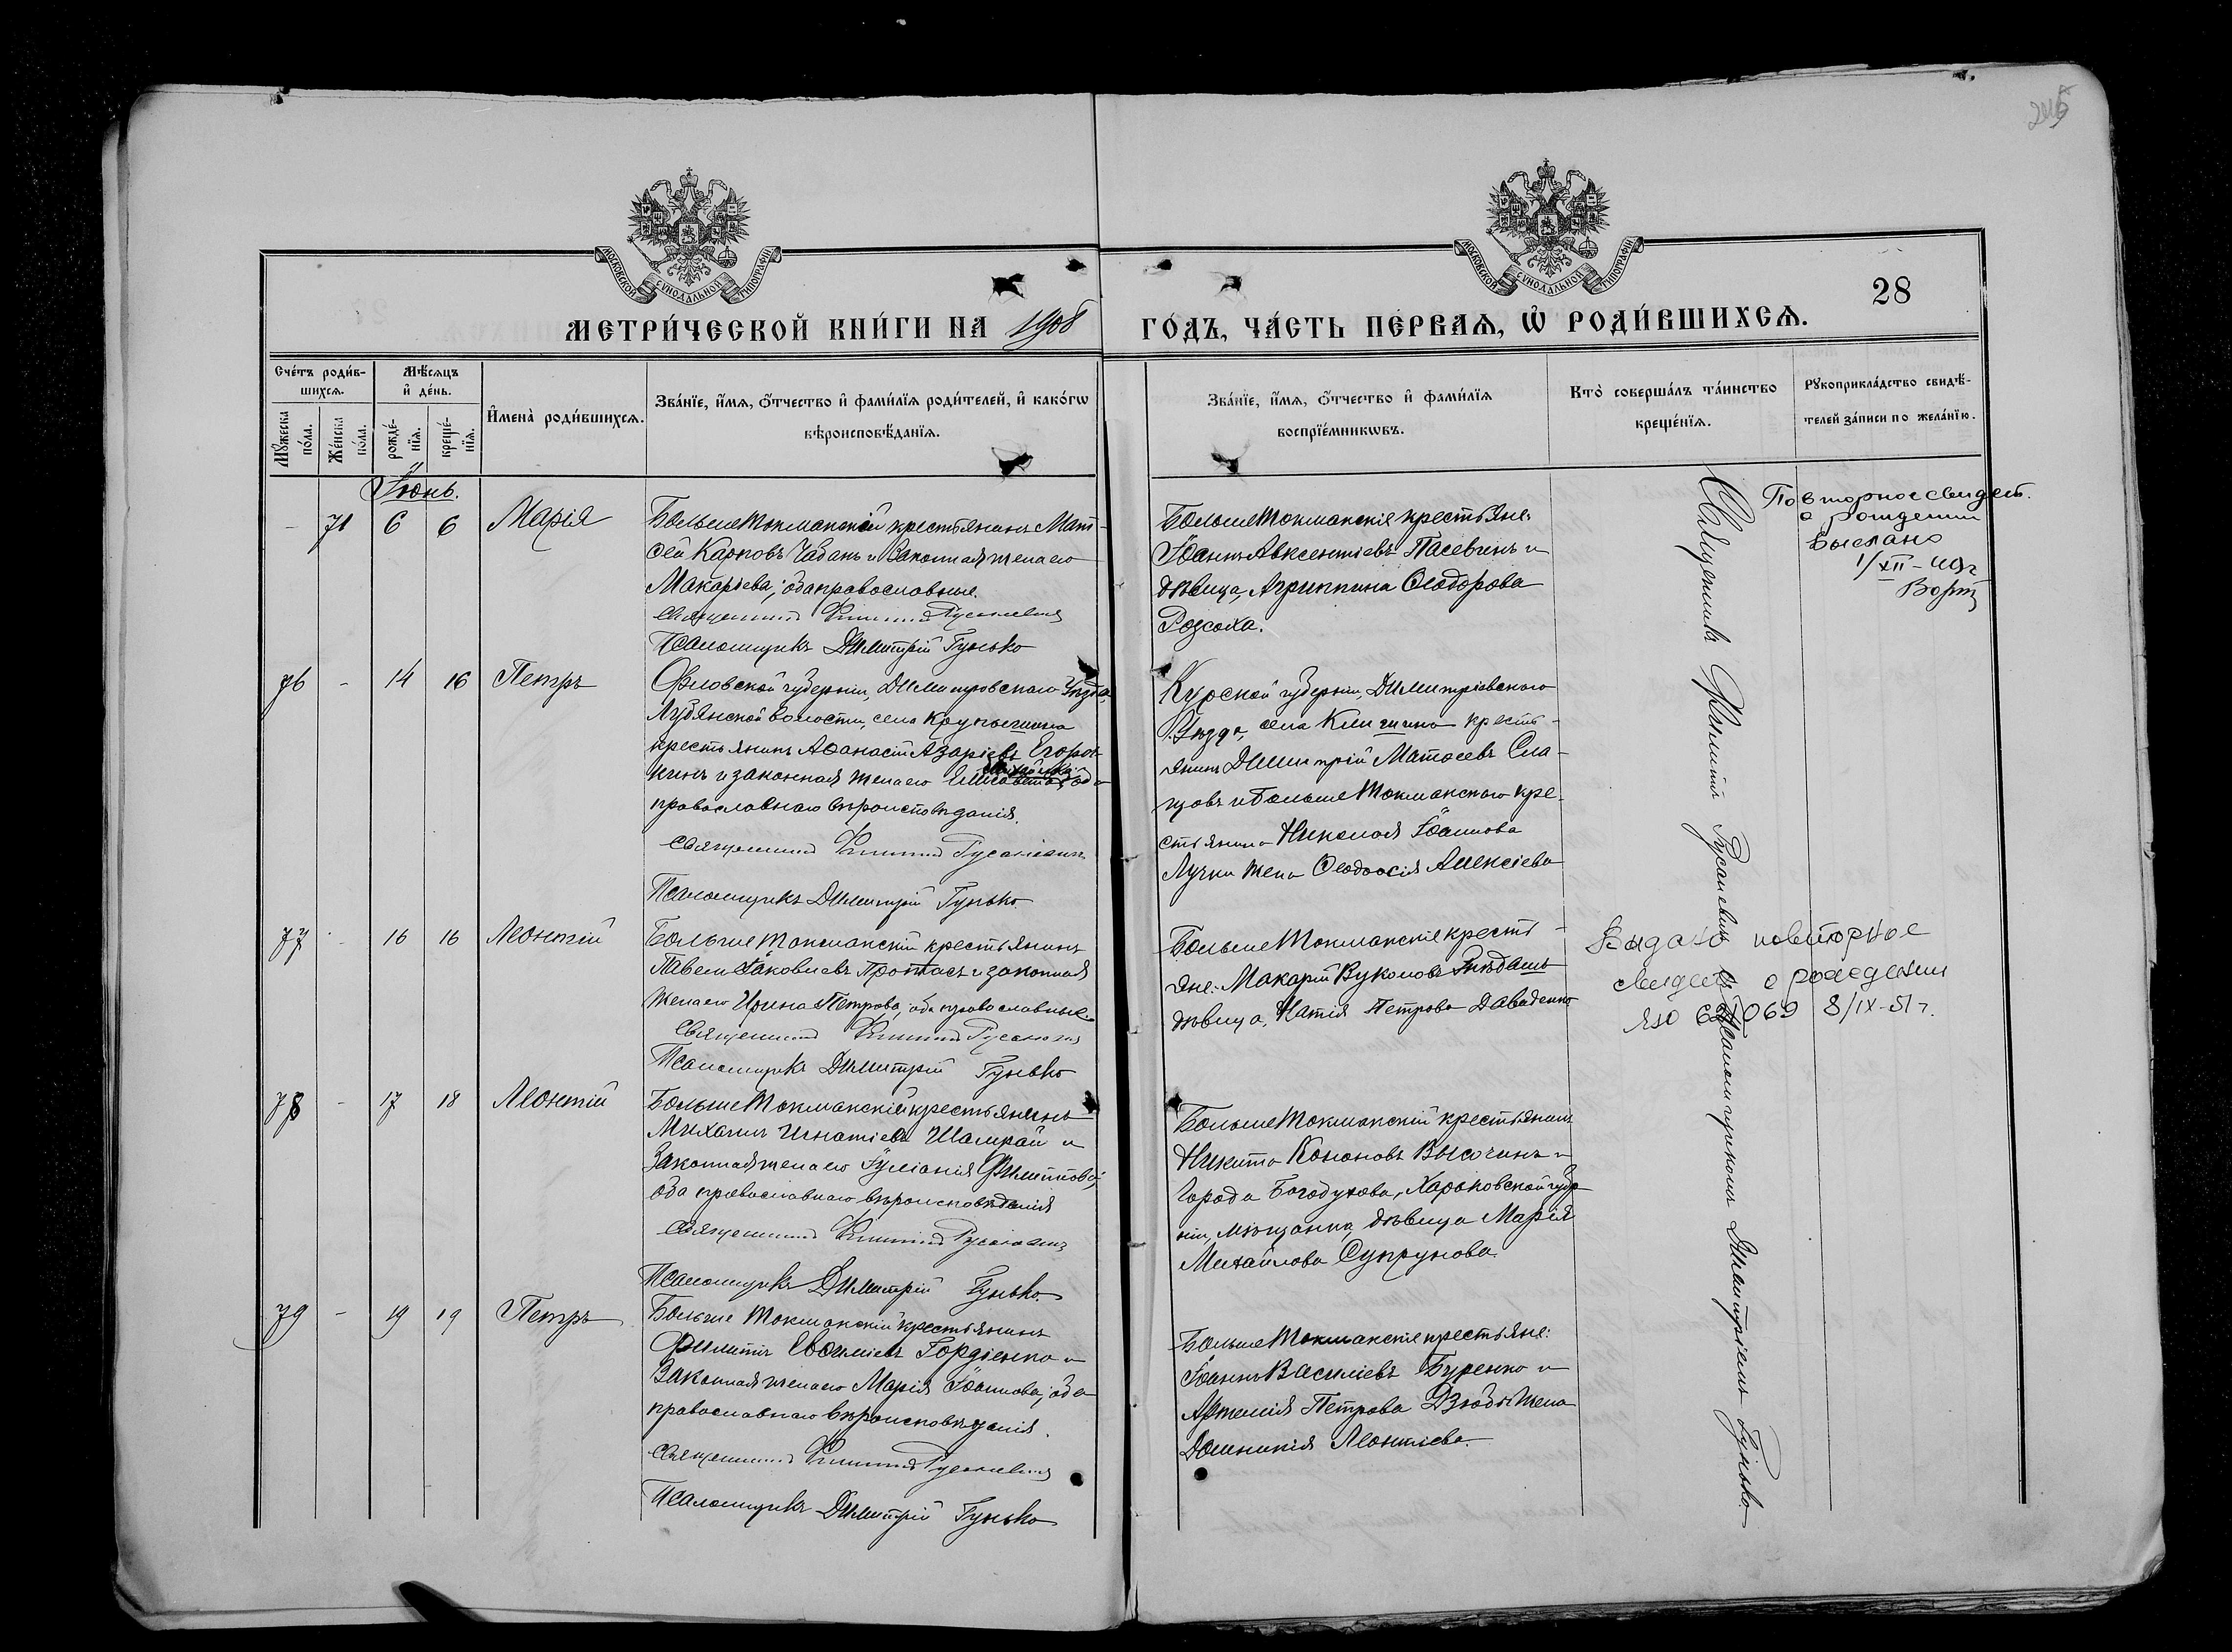 245
МОСКОВСКОЙ СѴНОДАЛЬНОЙ ТИПОГРАФІИ
МОСКОВСКОЙ СѴНОДАЛЬНОЙ ТИПОГРАФІИ
28
МЕТРИ́ЧЕСКОЙ КНИ́ГИ НА 1908
ГО́ДЪ, ЧА́СТЬ ПЕ́РВАѦ, Ѽ РОДИ́ВШИХСѦ.
Сче́тъ роди́в-
шихсѧ.
Мꙋ́жеска по́ла.
Же́нска по́ла.
Мѣ́сѧцъ
и҆ де́нь.
рожде́-
нїѧ.
креще́-
нїѧ.
И҆мена̀ роди́вшихсѧ.
Зва́нїе, и҆́мѧ, ѻ҆́тчество и҆ фами́лїѧ роди́телей, и҆ како́гѡ
вѣроисповѣ́данїѧ.
Зва́нїе, и҆́мѧ, ѻ҆́тчество и҆ фами́лїѧ
воспрїе́мникѡвъ.
Кто̀ соверша́лъ та́инство
креще́нїѧ.
Рꙋкоприкла́дство свидѣ́-
телей за́писи по жела́нїю.
Іюнь.
- 71 6 6 Марія
Больше Токмакскій крестьянинъ Мат-
ѳей Карповъ Чабанъ и законная жена его
Макарьева, оба православные.
Священникъ Филиппъ Русаневичъ
Псаломщикъ Димитрій Гунько
Больше Токмакскіе крестьяне:
Іоаннъ Авксентіевъ Пасевинъ и
дѣвица, Агриппина Ѳеодорова
Розсоха.
Повторное свидет.
о рождении
выслано
1/XII-49г
76 - 14 16 Петръ
Орловской губерніи, Димитровскаго Уѣзда,
Лубянской волости, села Крупышина
крестьянинъ Аѳанасій Азаріевъ Егороч
кинъ и законная жена его Елисавета оба
православнаго вѣроисповѣданія.
Священникъ Филиппъ Русаневичъ
Псаломщикъ Димитрій Гунько.
Курской губерніи, Димитріевскаго
Уѣзда, села Клишина кресть-
янинъ Димитрій Матѳеевъ Сла-
щовъ и Больше Токмакскаго кре-
стьянина Николая Іоаннова
Лучки жена Ѳеодосія Алексіева
77 - 16 16 Леонтій
Больше Токмакскій крестьянинъ
Павелъ Іаковлевъ Протасъ и законная
жена его Ирина Петрова, оба православные.
Священникъ Филиппъ Русаневичъ
Псаломщикъ Димитрій Гунько
Больше Токмакскіе кресть-
яне: Макарій Вуколовъ Гнѣдашъ
дѣвица, Катія Петрова Даваденко
Выдано повторное
свидет. о рождении
ЯЮ 8/IX-51г.
78 - 17 18 Леонтій
Больше Токмакскій крестьянинъ
Михаилъ Игнатіевъ Шамрай и
Законная жена его Іуліанія Филиппова,
оба православнаго вѣроисповѣданія
Священникъ Филиппъ Русаневичъ
Псаломщикъ Димитрій Гунько.
Больше Токмакскій крестьянинъ
Никита Кононовъ Высочинъ и
Города Богодухова, Харьковской губер
ніи, мѣщанка, дѣвица Марія
Михайлова Супрунова.
79 - 19 19 Петръ
Больше Токмакскій крестьянинъ
Филиппъ Евѳиміевъ Гордіенко и
Законная жена его Марія Іоаннова, оба
православнаго вѣроисповѣданія.
Священникъ Филиппъ Русаневичъ
Псаломщикъ Димитрій Гунько
Больше Токмакскіе крестьяне:
Іоаннъ Василіевъ Буренко и
Артемія Петрова Дзюбы жена
Домникія Леонтіева.
Священникъ Филиппъ Русаневичъ съ Псаломщикомъ Димитріемъ Гунько.